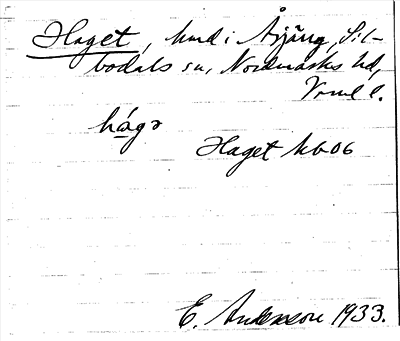 Haget, hmd i Årjäng, Sil-
bodals sn, Nordmarks hd,
Vrml l.
hágə
Haget kb06
E. Andersson 1933.